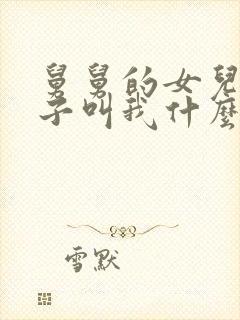 舅舅的女兒
子叫我什麼
雪默